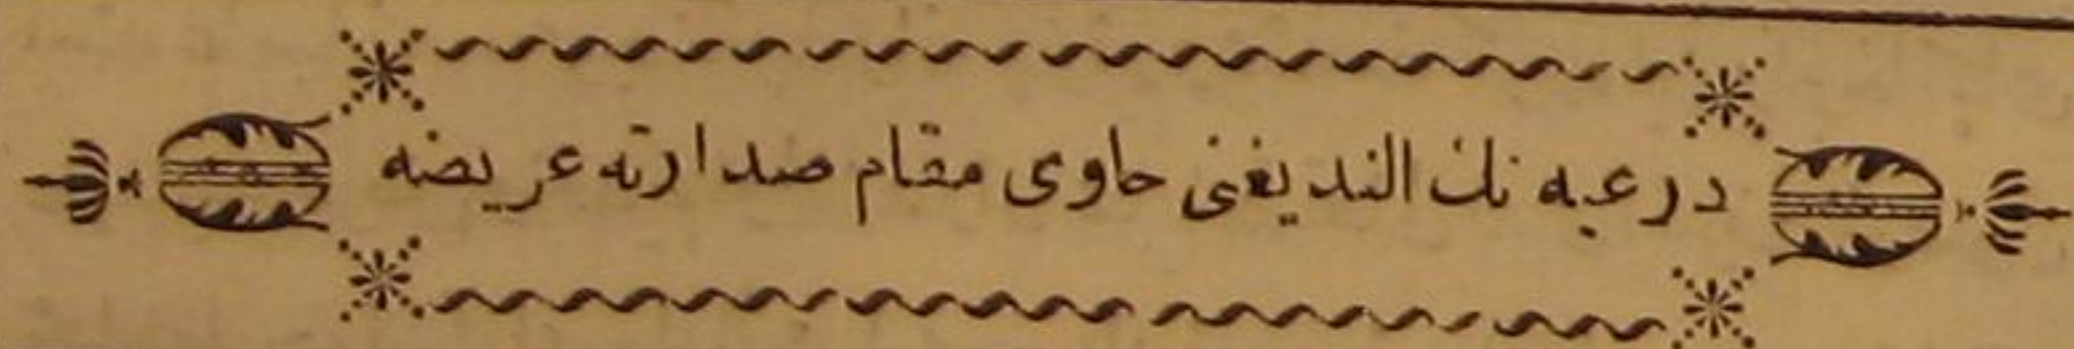 درعیه نك الندیغنی حاوی مقام صدارته عریضه